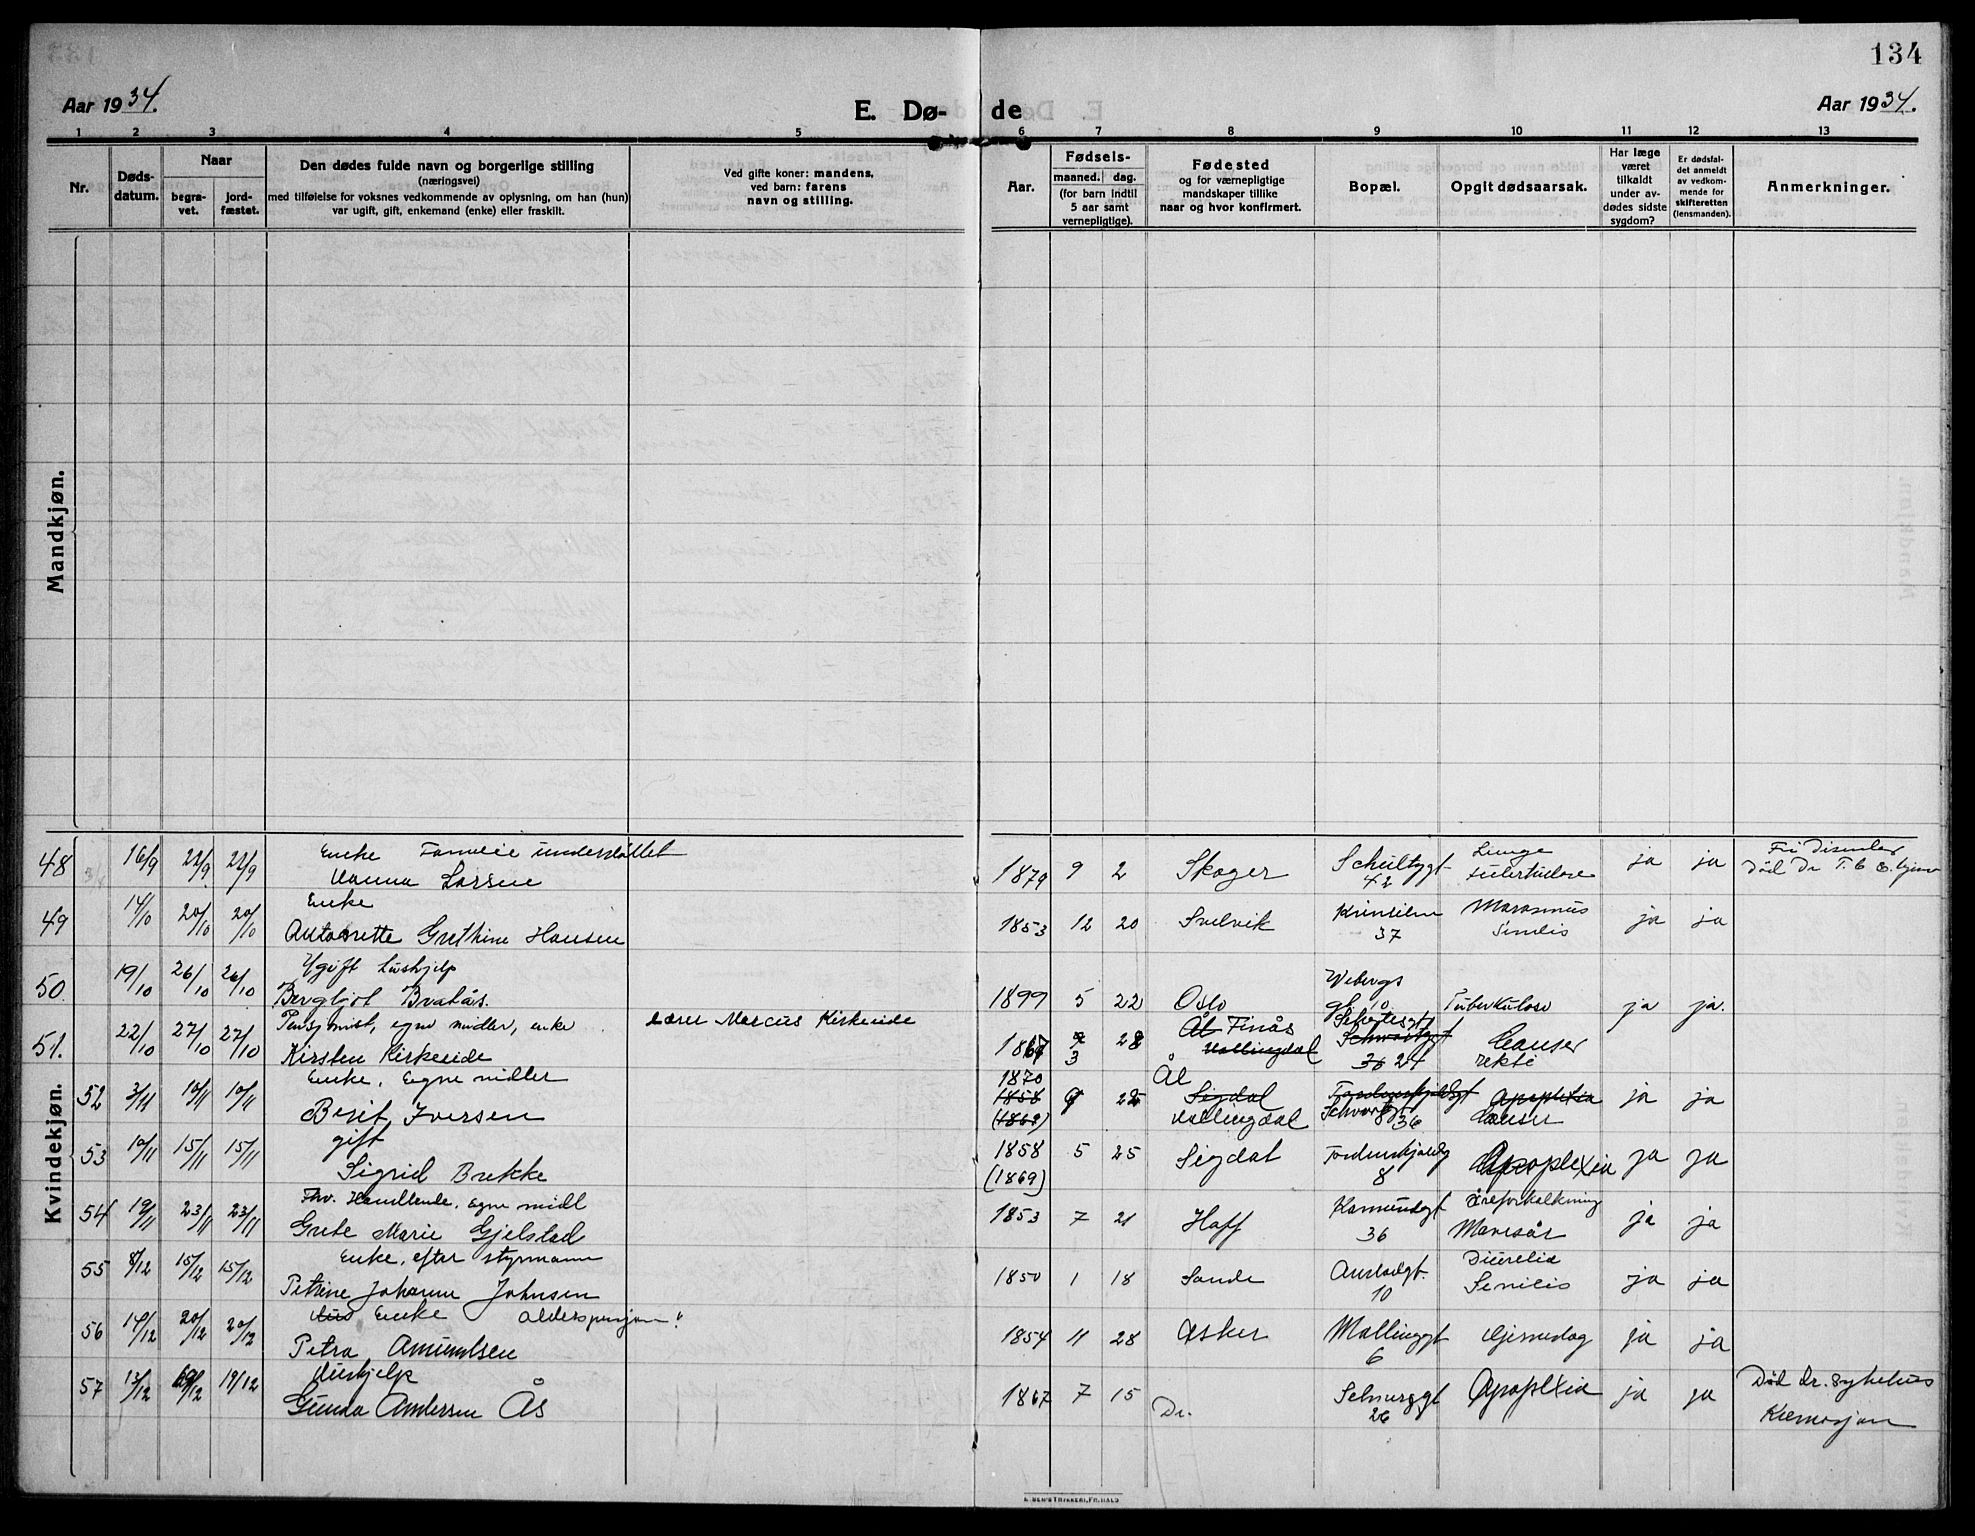 134
Aar 1934.
E. Dø-
de
Aar 1934.
1 2 3 4 5 6 7 8 9 10 11 12 13
Nr.
Døds-
datum.
Naar
begra-
vet.
jord-
fæstet.
Den dødes fulde navn og borgerlige stilling
(næringsvei)
med tilføielse for voksnes vedkommende av oplysning, om han (hun)
var ugift, gift, enkemand (enke) eller fraskilt.
Ved gifte koner: mandens,
ved barn: farens
navn og stilling.
Aar.
Fødsels-
maaned. dag.
(for barn indtil
5 aar samt
vernepligtige).
Fødested
og for værnepligtige
mandskaper tillike
naar og hvor konfirmert.
Bopæl.
Opgit dødsaarsak.
Har læge
været
tilkaldt
under av-
dødes sidste
sygdom?
Er dødsfal-
det anmeldt
av vedkom-
mende for
skifteretten
(lensmanden).
Anmerkninger.
Mandkjøn.
Kvindekjøn.
48 16/9 22/9 22/9 Enke Familie understøttet
Hanna Larsen
1879 9 2 Skoger Schultzgt 42 Lunge
tuberkulose ja ja
Død Dr.
49 14/10 20/10 20/10 Enke
Antonette Grethine Hansen
1853 12 20 Svelvik 37 Marasmus
Senilis ja ja
50 19/10 26/10 26/10 Ugift
Bergljot Bratås.
1899 5 22 Oslo Webergs
gt 10 Tuberkulose ja ja.
51. 22/10 27/10 27/10 Pensjonist, egne midler, enke
Kirsten Kirkeeide
Lærer Marcus Kirkeeide
3 28 Ål Finås
Hallingdal
36 24 Cancer
rekti
52 3/11 10/11 10/11 Enke. Egne midler
Berit Iversen
1870
1858
(1869)
9 22 Ål
Sigdal
Hallingdal
Tordenskjoldsgt
Schwartzgt 36
Apoplexia
Cancer ja ja
53 10/11 15/11 15/11 gift
Sigrid Brekke
1858
(1869)
5 25 Sigdal Tordenskjoldsg
8 Apoplexia ja ja
54 19/11 23/11 23/11 Fhv. Handlende. Egne midl
Grete Marie Gjelstad
1853 7 21 Hoff 36 Åreforkalkning
Mavesår ja ja
55 8/12 15/12 15/12 Enke, efter styrmann
Petrine Johanne Johnsen
1850 1 18 Sande
10 Senilis ja ja
56 14/12 20/12 20/12 Enke Alderspensjon
Petra Amundsen
1854 11 28 Asker Mallinggt
6 Hjerneslag ja ja
57 13/12 19/12 19/12 Hushjelp
Gunda Andersen Ås
1867 7 15 Dr.
26 Apoplexia ja ja
Død Dr. sykehus
Kremasjon